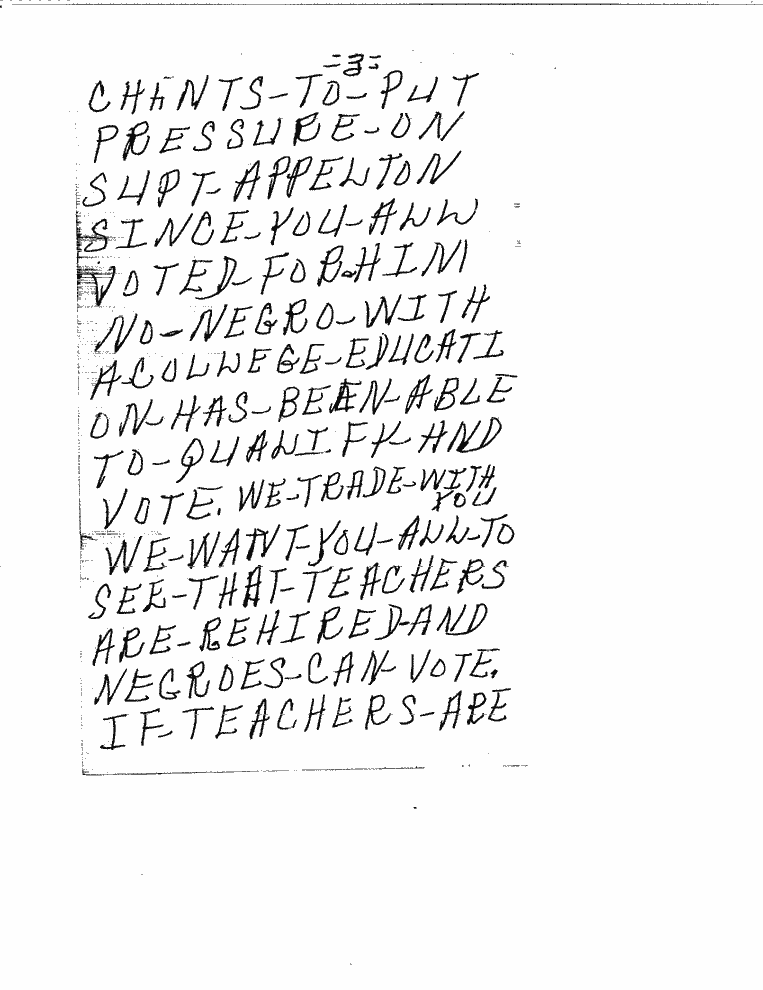 =3=
CHANTS-TO-PUT
PRESSURE-ON
SUPT-APPELTON
SINCE-YOU-ALL
VOTED-FOR-HIM
NO-NEGRO-WITH
A-COLLEGE-EDUCATI
ON-HAS-BEEN-ABLE
TO-QUALIFY-AND
VOTE. WE-TRADE-WITH
YOU
WE-WANT-YOU-ALL-TO
SEE-THAT-TEACHERS
ARE-REHIRED-AND
NEGROES-CAN-VOTE.
IF-TEACHERS-ARE